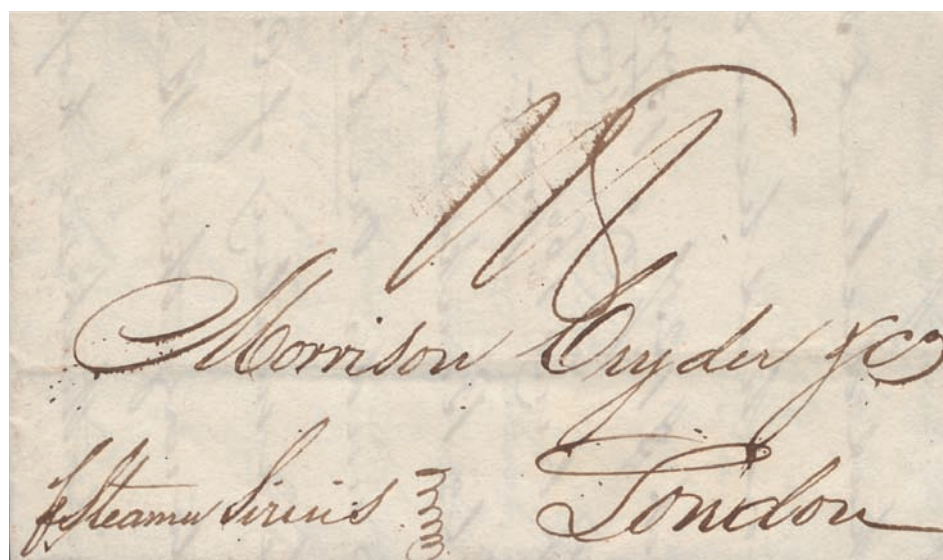 1/8
Morrison Cryder & Co
London
p Steamer Sirius